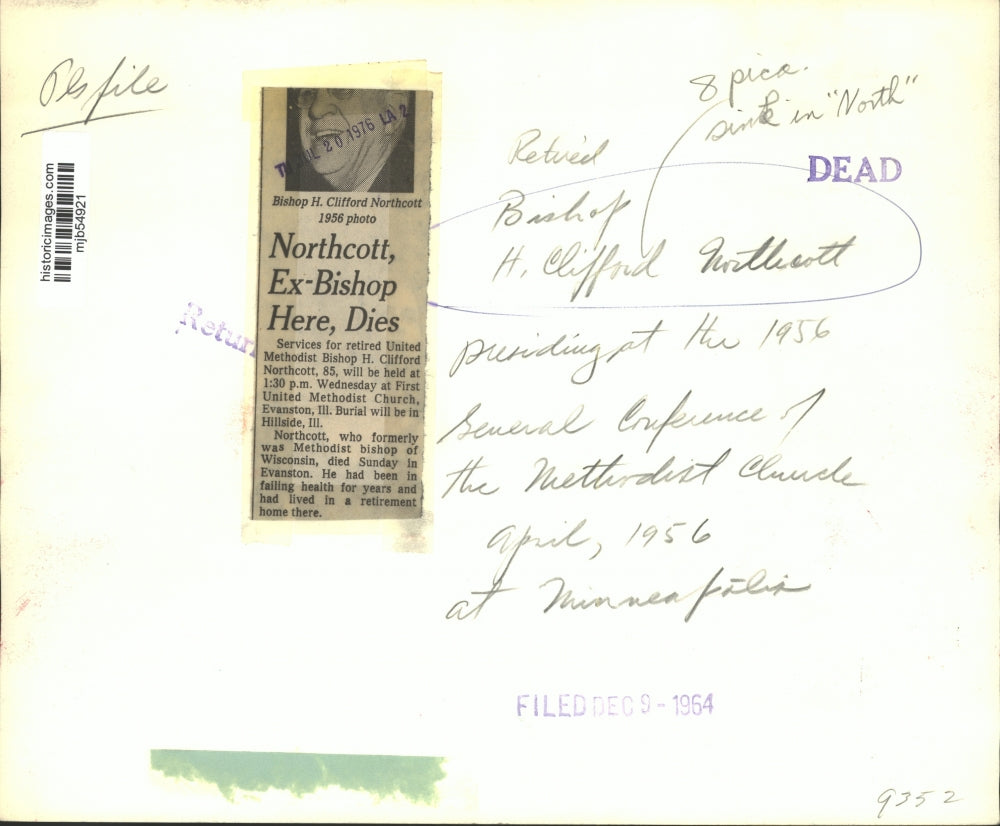 Pls file
8 pica.
sink in "North"
DEAD
Retired
Bishop
H. Clifford Northcott
presiding at the 1956
General Conference of
the Methodist Church
April, 1956
at Minneapolis
FILED DEC 9 - 1964
9352
historicimages.com
mjb54921
Return
JUL 20 1976 LA 2
Bishop H. Clifford Northcott
1956 photo
Northcott,
Ex-Bishop
Here, Dies
Services for retired United
Methodist Bishop H. Clifford
Northcott, 85, will be held at
1:30 p.m. Wednesday at First
United Methodist Church,
Evanston, Ill. Burial will be in
Hillside, Ill.
Northcott, who formerly
was Methodist bishop of
Wisconsin, died Sunday in
Evanston. He had been in
failing health for years and
had lived in a retirement
home there.